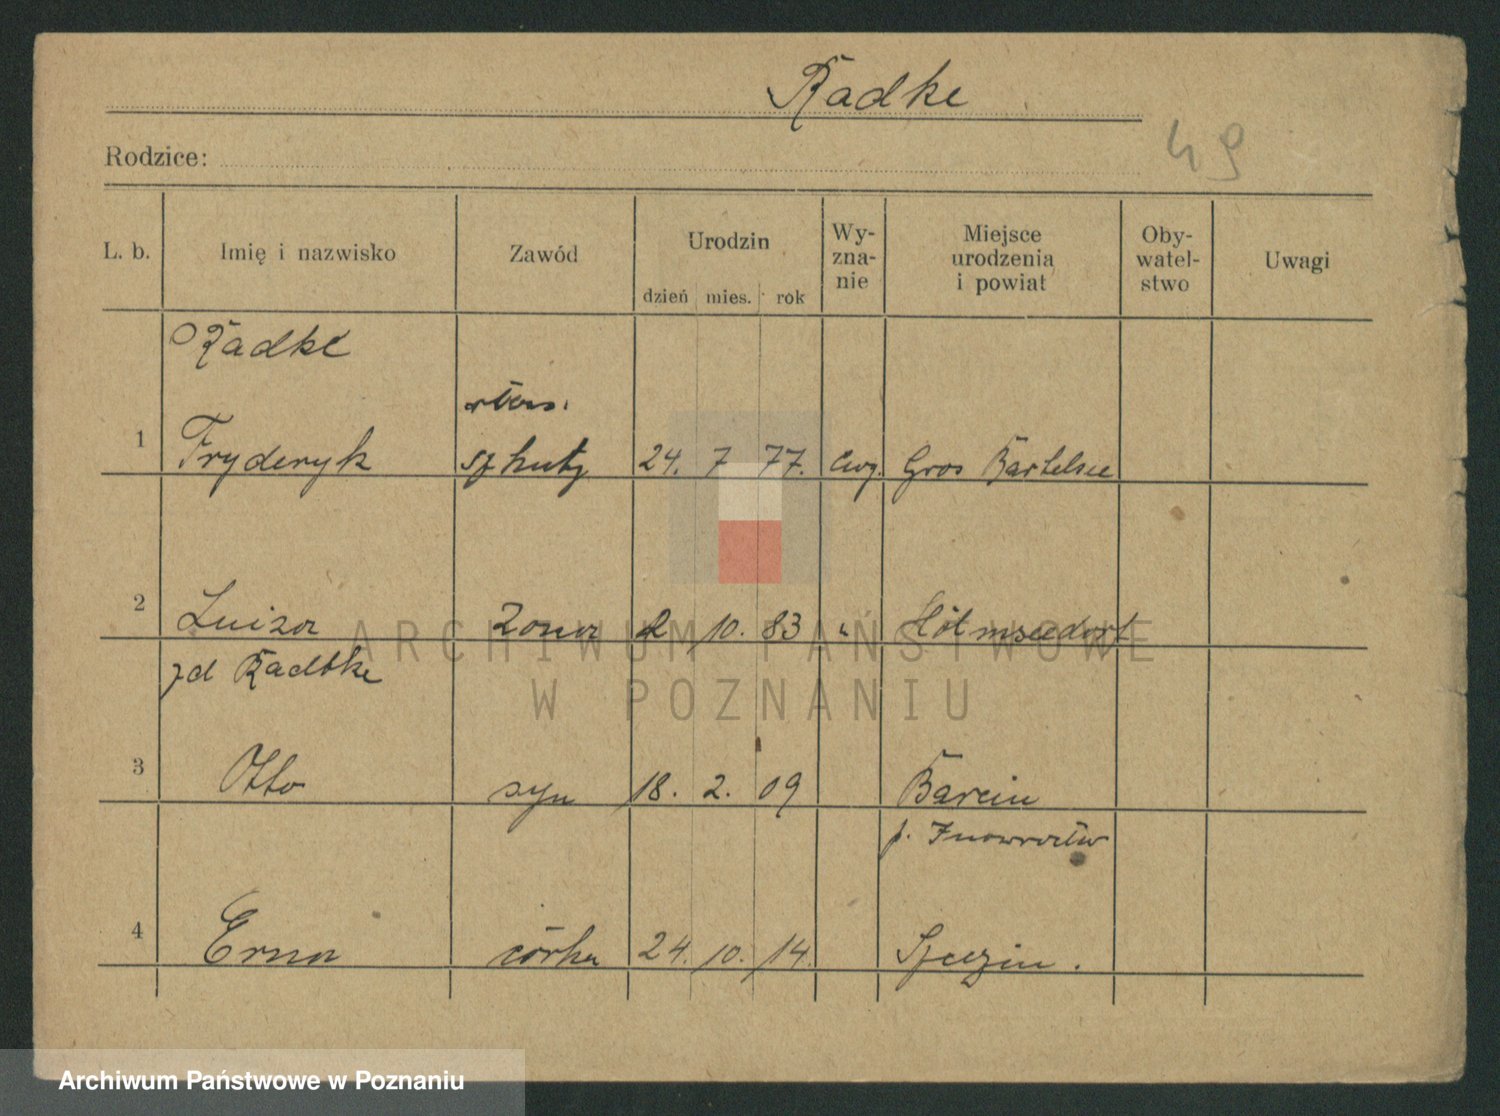 Radke
49
Rodzice:
L. b. Imię i nazwisko Zawód Urodzin Wy-zna-nie Miejsce urodzenia i powiat Oby-watel-stwo Uwagi
dzień mies. rok
Radke
1 Fryderyk szkuty 24. 7 77. ewg. Gros Bartelsee
2 Luiza żona 2 10. 83 "
zd Radtke
3 Otto syn 18. 2. 09 Barcin
p. Inowrocław
4 Erna córka 24. 10. 14.
ARCHIWUM PAŃSTWOWE
W POZNANIU
Archiwum Państwowe w Poznaniu